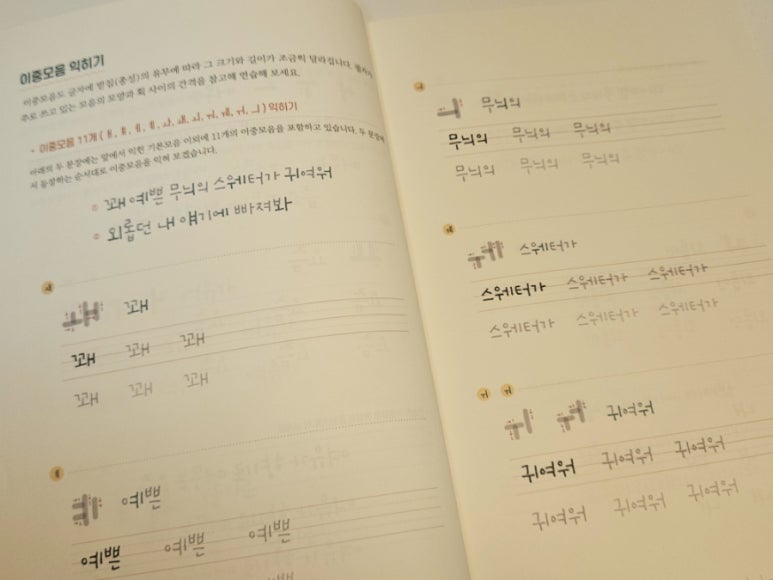 이중모음 익히기
이중모음도 글자에 받침(종성)의 유무에 따라 그 크기와 길이가 조금씩 달라집니다.
주로 쓰고 있는 모음의 모양과 획 사이의 간격을 참고해 연습해 보세요.
• 이중모음 11개 (ㅐ, ㅒ, ㅔ, ㅖ, ㅘ, ㅙ, ㅚ, ㅝ, ㅞ, ㅟ, ㅢ) 익히기
아래의 두 문장에는 앞에서 익힌 기본모음 이외에 11개의 이중모음을 포함하고 있습니다. 두 문장에
서 등장하는 순서대로 이중모음을 익혀 보겠습니다.
① 꽤 예쁜 무늬의 스웨터가 귀여워
② 외롭던 내 얘기에 빠져봐
ㅙ
ㅙ 꽤
꽤 꽤 꽤
꽤 꽤 꽤
ㅖ
ㅖ 예쁜
예쁜 예쁜 예쁜
예쁜
ㅢ
ㅢ 무늬의
무늬의 무늬의 무늬의
무늬의 무늬의 무늬의
ㅞ
ㅞ 스웨터가
스웨터가 스웨터가 스웨터가
스웨터가 스웨터가 스웨터가
ㅟ ㅝ
ㅟ ㅝ 귀여워
귀여워 귀여워 귀여워
귀여워 귀여워 귀여워